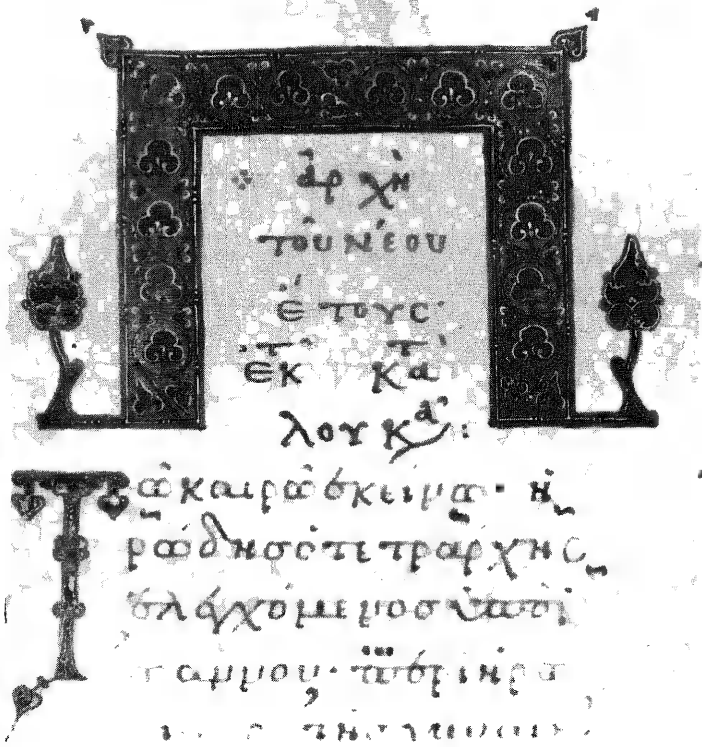 ἀρχὴ
τοῦ νέου
ἔτους·
ἐκ τ κατ
λουκᾶ:
Τῶ καιρῶ ἐκείνω· ἡ
ρώδησ ὁ τετράρχησ
ἐλεγχόμενοσ ὑπὸ ἰ
ωάννου· περὶ ἡρω
τῆσ